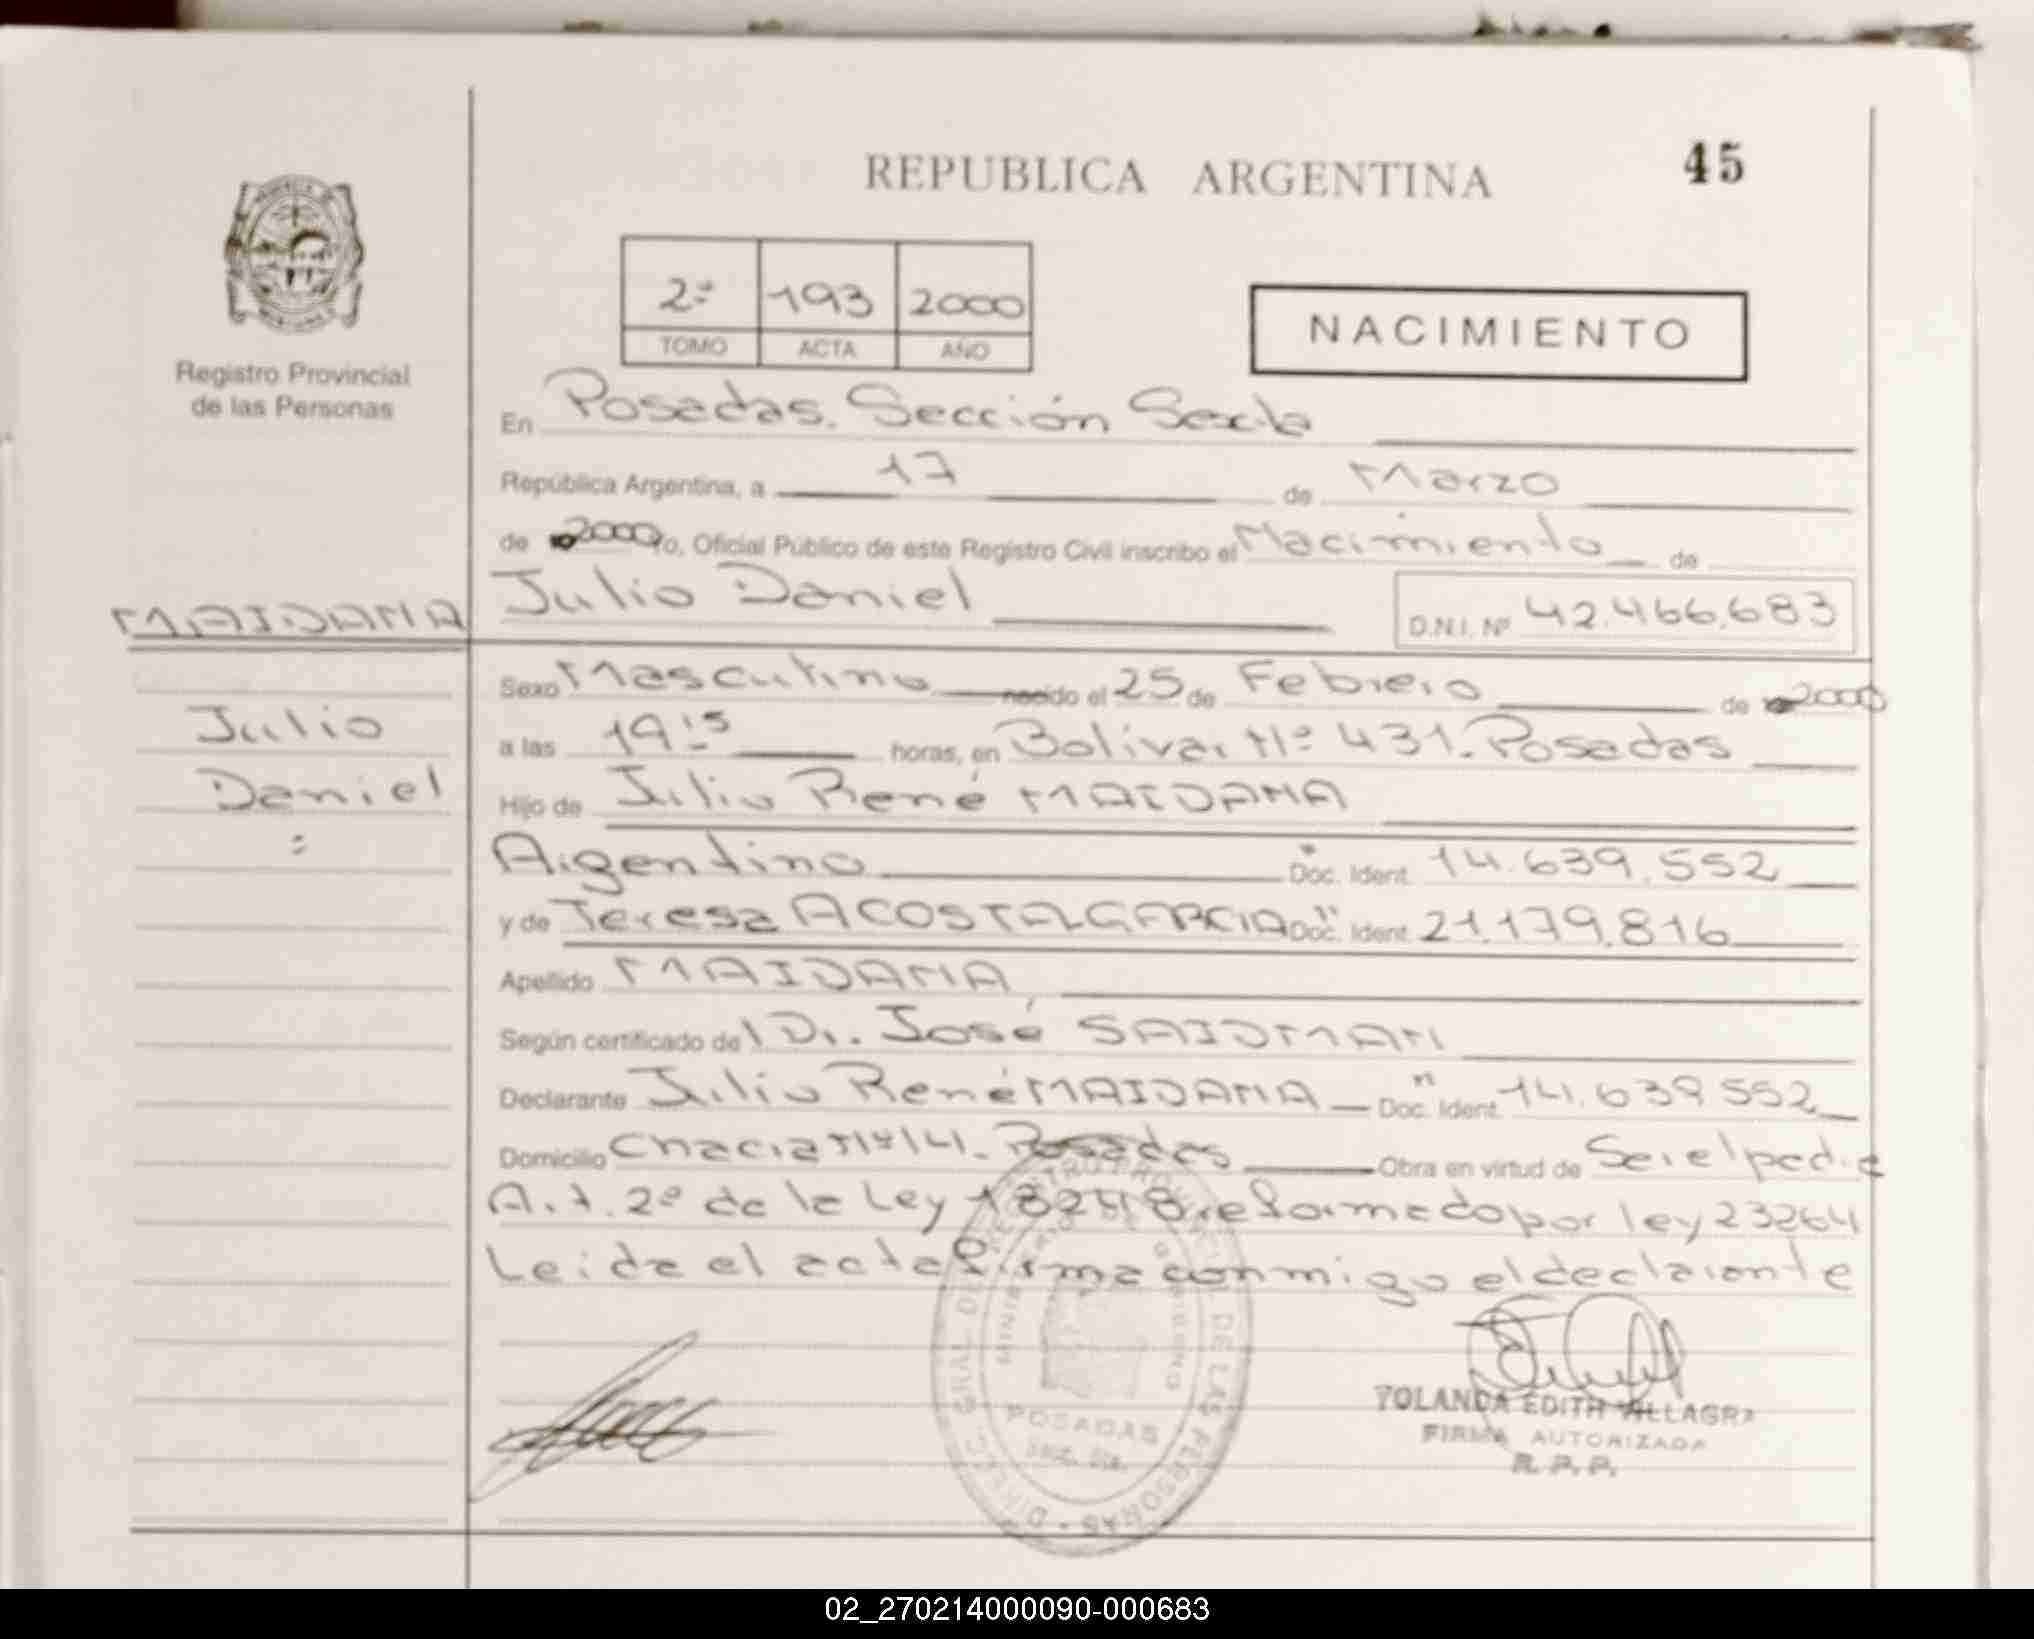 REPUBLICA ARGENTINA
45
2º 193 2000
TOMO ACTA AÑO
NACIMIENTO
Registro Provincial
de las Personas
En Posadas. Sección Sexta
República Argentina, a 17 de Marzo
de 2000 yo, Oficial Público de este Registro Civil inscribo el Nacimiento de
MAIDANA Julio Daniel D.N.I. Nº 42.466.683
Sexo Masculino nacido el 25 de Febrero de 2000
Julio
a las 19:15 horas, en Bolivar Nº 431. Posadas
Daniel
Hijo de Julio René MAIDANA
Argentino Doc. Ident. 14.639.552
y de Teresa ACOSTA GARCIA Doc. Ident. 21.179.816
Apellido MAIDANA
Según certificado del Dr. José SAIDMAN
Declarante Julio René MAIDANA Doc. Ident. 14.639.552
Domicilio Chacra Nº 141. Posadas Obra en virtud de Ser el padre
Art. 2º de la Ley 18248 reformado por ley 23264
Leida el acta firma conmigo el declarante
DIRECC. GRAL DE REGISTRO PROVINCIAL DE LAS PERSONAS
MINISTERIO DE GOBIERNO
POSADAS
YOLANDA EDITH VILLAGRA
FIRMA AUTORIZADA
R. P. P.
02_270214000090-000683